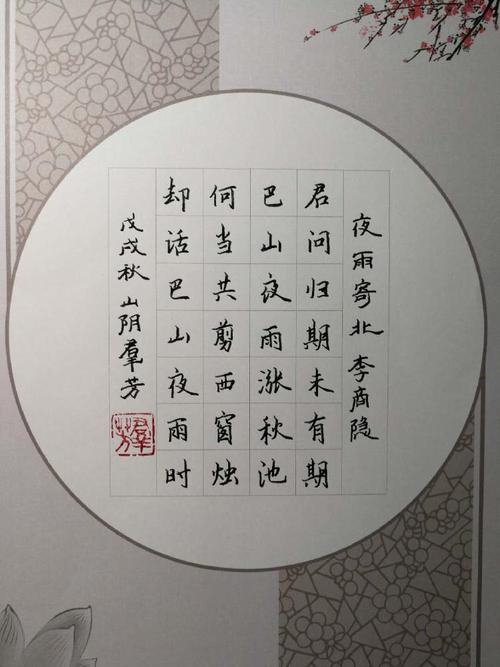 夜雨寄北 李商隐
君问归期未有期
巴山夜雨涨秋池
何当共剪西窗烛
却话巴山夜雨时
戊戌秋 山阴羣芳
羣芳